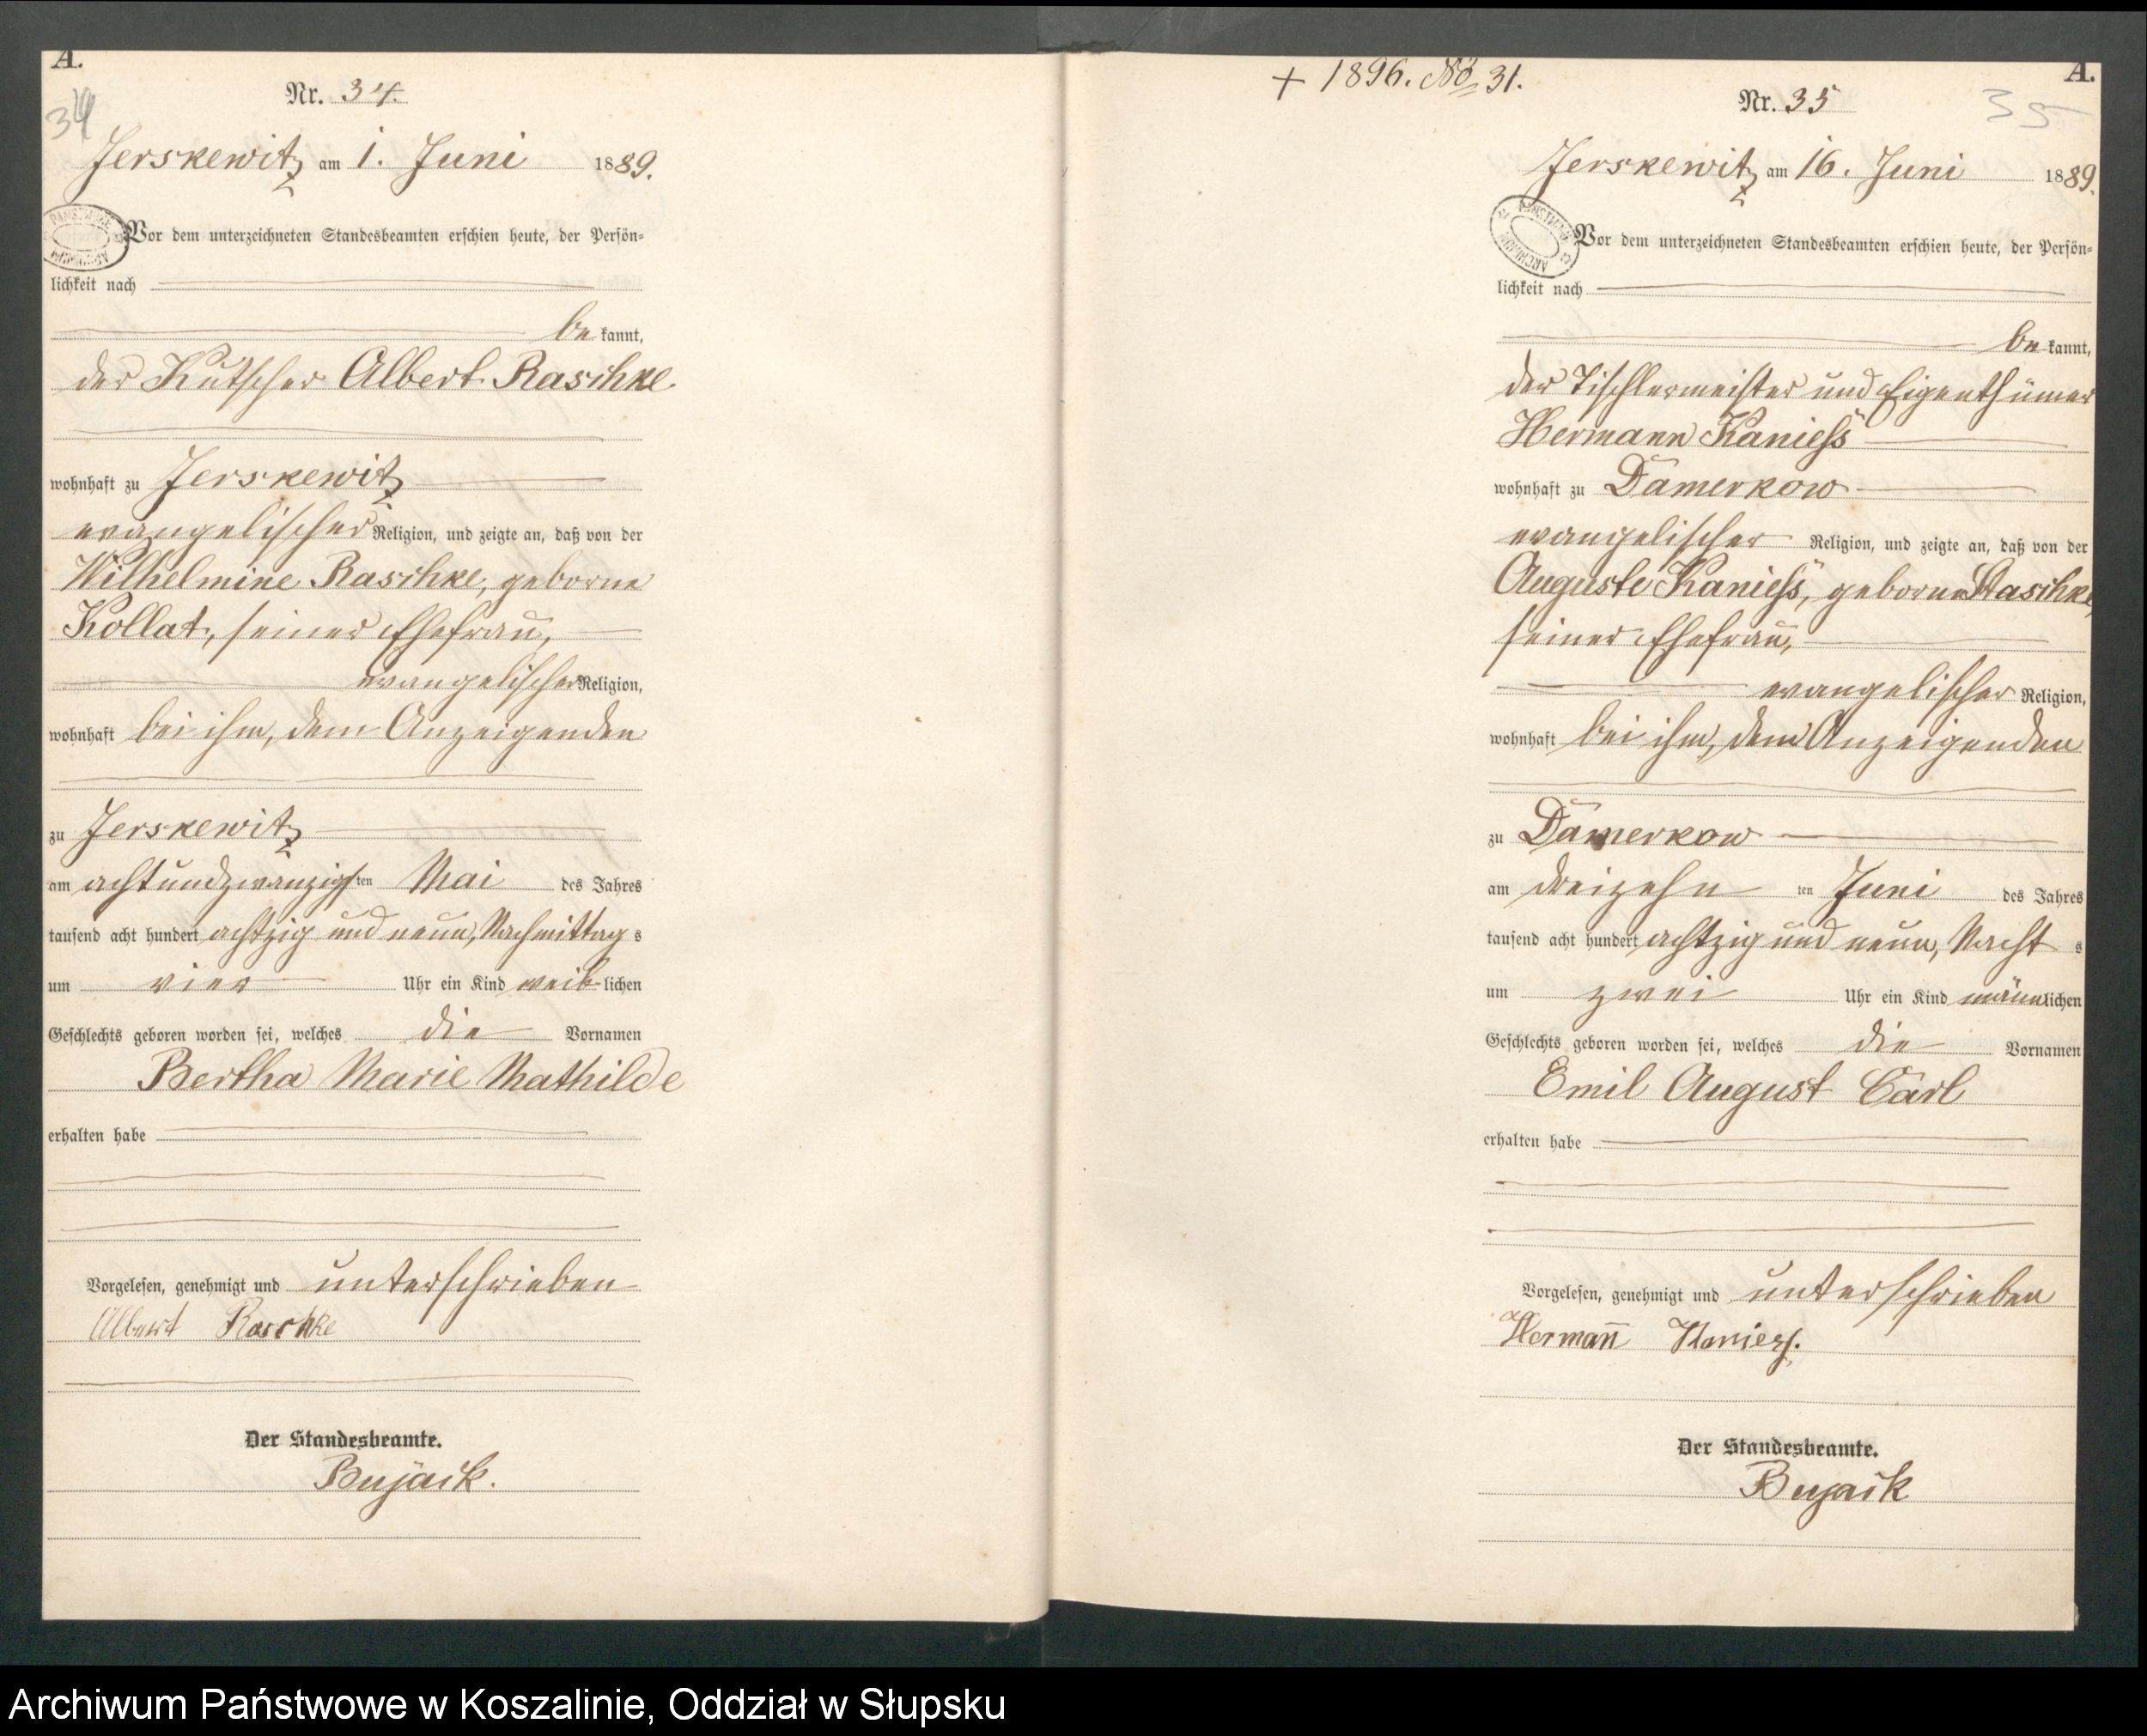 A.
Nr. 34.
34
Jerskewitz am 1. Juni 1889.
Vor dem unterzeichneten Standesbeamten erschien heute, der Persön=
lichkeit nach
be kannt,
der Kutscher Albert Raschke
wohnhaft zu Jerskewitz
evangelischer Religion, und zeigte an, daß von der
Wilhelmine Raschke, geborne
Kollat, seiner Ehefrau,
evangelischer Religion,
wohnhaft bei ihm, dem Anzeigenden
zu Jerskewitz
am achtundzwanzigsten Mai des Jahres
tausend acht hundert achtzig und neun, Nachmittags
um vier Uhr ein Kind weiblichen
Geschlechts geboren worden sei, welches die Vornamen
Bertha Marie Mathilde
erhalten habe
Vorgelesen, genehmigt und unterschrieben
Albert Raschke
Der Standesbeamte.
Bujack.
+ 1896. No 31.
A.
Nr. 35
35
Jerskewitz am 16. Juni 1889.
Vor dem unterzeichneten Standesbeamten erschien heute, der Persön=
lichkeit nach
be kannt,
der Tischlermeister und Eigenthümer
Hermann Kanieß
wohnhaft zu Damerkow
evangelischer Religion, und zeigte an, daß von der
Auguste Kanieß, geborne
seiner Ehefrau,
evangelischer Religion,
wohnhaft bei ihm, dem Anzeigenden
zu Damerkow
am dreizehn ten Juni des Jahres
tausend acht hundert achtzig und neun, Nachts
um zwei Uhr ein Kind männlichen
Geschlechts geboren worden sei, welches die Vornamen
Emil August Carl
erhalten habe
Vorgelesen, genehmigt und unterschrieben
Hermann Kanieß.
Der Standesbeamte.
Bujack
Archiwum Państwowe w Koszalinie, Oddział w Słupsku